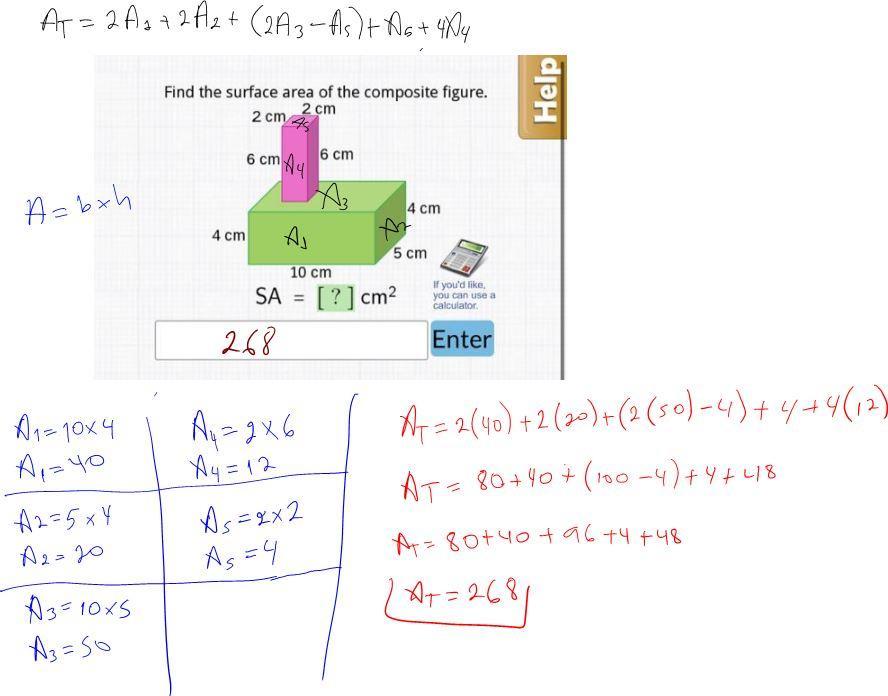 A_T = 2A_1 + 2A_2 + (2A_3 - A_5) + A_5 + 4A_4
Help
Find the surface area of the composite figure.
2 cm
2 cm
A_5
6 cm
A_4
6 cm
A = b×h
A_3
4 cm
4 cm
A_1
A_2
5 cm
10 cm
SA = [ ? ] cm²
If you'd like,
you can use a
calculator.
268
Enter
A1=10×4
A_1=40
A2=5×4
A2=20
A3=10×5
A_3=50
A_4=2×6
A_4=12
A_5=2×2
A_5=4
A_T=2(40)+2(20)+(2(50)-4)+4+4(12)
A_T= 80+40+(100-4)+4+48
A_T=80+40+96+4+48
A_T=268